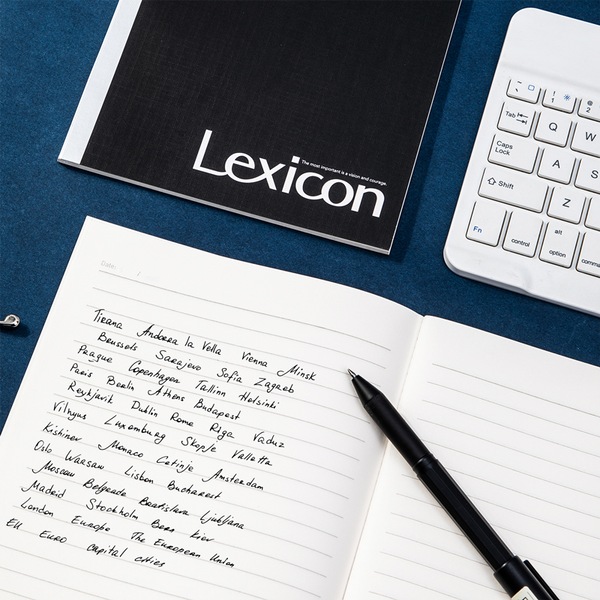 Lexicon
The most important is a vision and courage.
Date: /
Tirana Andorra la Vella Vienna Minsk
Brussels Sarajevo Sofia Zagreb
Prague Copenhagen Tallinn Helsinki
Paris Berlin Athens Budapest
Reykjavik Dublin Rome Riga Vaduz
Vilnyus Luxembourg Skopje Valletta
Kishinev Monaco Cetinje Amsterdam
Oslo Warsaw Lisbon Bucharest
Moscow Belgrade Bratislava Ljubljana
Madrid Stockholm Bern Kiev
London Europe The European Union
EU Euro capital cities
1 @ 2
Tab Q W
Caps Lock A S
Shift Z
Fn control alt option